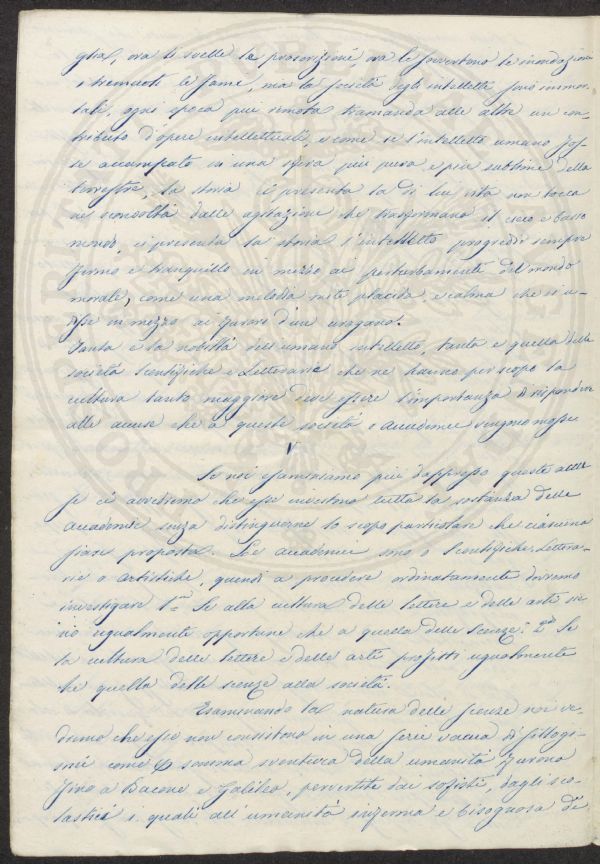 glia, ora li svelle la proscrizione, ora le sovvertono le inondazioni
i tremuoti le fame, ma la società degli intelletti sono immor-
tali, ogni epoca più remota tramanda alle altre un con-
tributo d'opere intellettuali, e come se l'intelletto umano fos-
se accampato in una sfera più pura e più sublime della
terrestre, la storia ci presenta la di lui vita non tocca
nè sconvolta dalle agitazione che trasformano il cieco e basso
mondo, ci presenta la storia l'intelletto progredir sempre
fermo e tranquillo in mezzo ai perturbamenti del mondo
morale, come una melodia mite placida, e calma che si u-
disse in mezzo ai furori d'un uragano.
Tanta è la nobiltà dell'umano intelletto, tanta e quella delle
società Scentifiche e Letterarie che ne hanno per scopo la
cultura tanto maggiore deve essere l'importanza di rispondere
alle accuse che a queste società o Accademie vengono mosse
V
Se noi esaminiamo più dappresso queste accu-
se ci avvedremo che esse investono tutta la sostanza delle
accademie senza distinguerne lo scopo particolare che ciascuna
siasi proposta. Le accademie sono o Scentifiche, Lettera-
rie o artistiche, quindi a procedere ordinatamente dovremo
investigare 1.º Se alla cultura delle lettere e delle arti sie-
no egualmente opportune che a quella delle scenze: 2.º Se
la cultura delle lettere e delle arti profitti ugualmente
che quella delle scenze alla società.
Esaminando la natura delle scenze noi ve-
dremo che esse non consistono in una serie vacua di sillogi-
smi come a somma sventura della umanità furono
fino a Bacone e Galileo, pervertite dai sofisti, dagli sco-
lastici i quali all'umanità inferma e bisognosa di
ROSPERITA